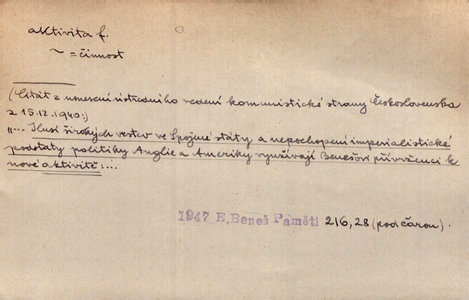 aktivita f.
~ = činnost
(Citát z usnesení ústředního vedení komunistické strany Československa
z 15.12.1940:)
„... Ilusí širokých vrstev ve Spojené státy a nepochopení imperialistické
podstaty politiky Anglie a Ameriky využívají Benešovi přívrženci k
nové aktivitě;...
1947 E. Beneš Paměti 216,28 (pod čarou).